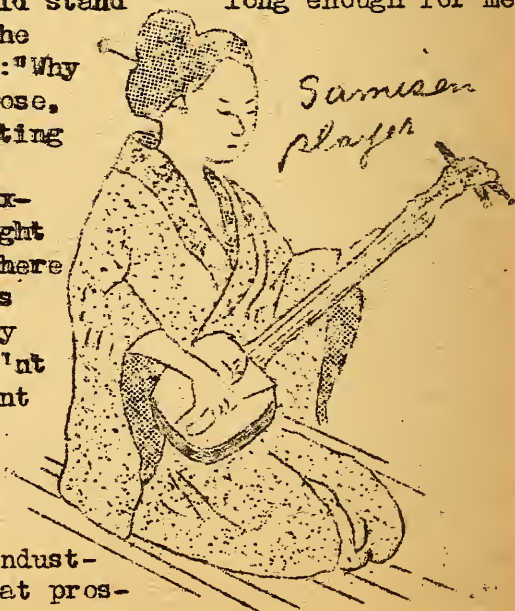 ld stand
long enough for me
he
:"Why
ose,
ting
x-
ght
here
s
y
'nt
nt
ndust-
at pros-
Samisen
player